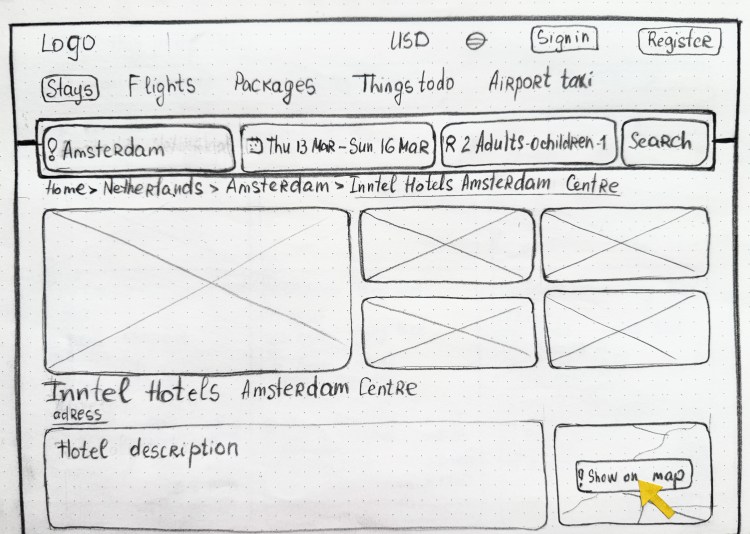 Logo USD Sign in Register
Stays Flights Packages Things to do Airport taxi
Amsterdam Thu 13 Mar - Sun 16 Mar 2 Adults - 0 children - 1 Search
Home > Netherlands > Amsterdam > Inntel Hotels Amsterdam Centre
Inntel Hotels Amsterdam Centre
adress
Hotel description
Show on map